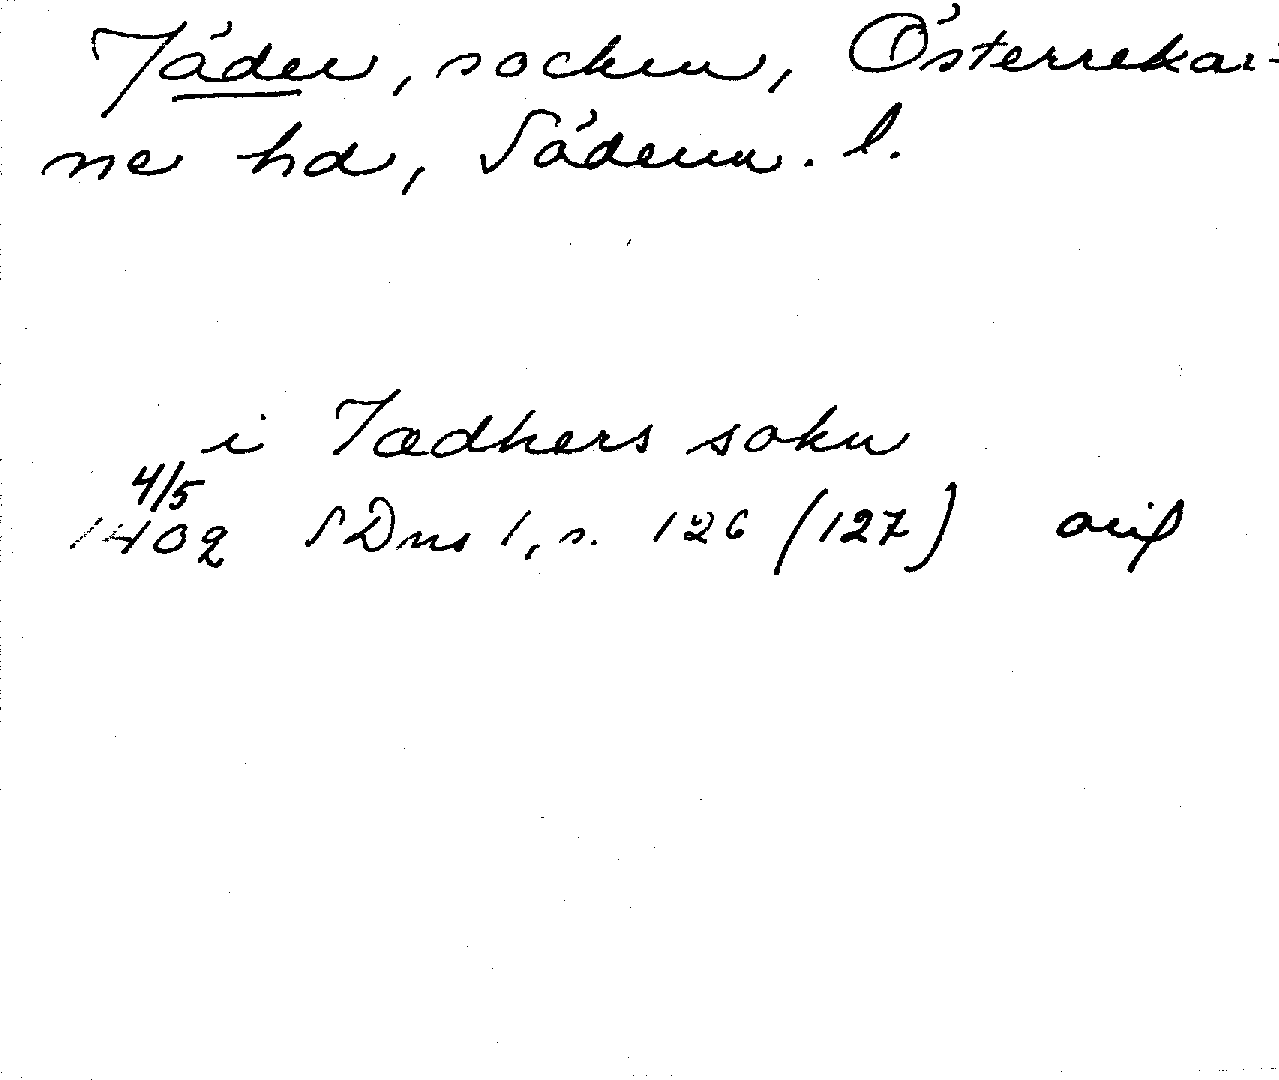 Jäder, socken, Österrekar-
ne hd, Söderm. l.
i Jædhers sokn
4/5
1402 SDns 1, s. 126 (127) orig